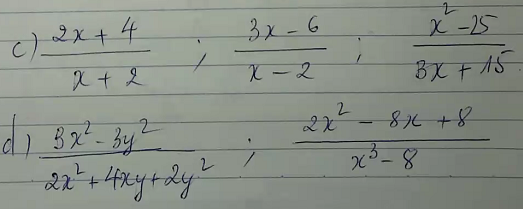 c) (2x + 4)/(x + 2) ; (3x - 6)/(x - 2) ; (x² - 25)/(3x + 15)
d) (3x² - 3y²)/(2x² + 4xy + 2y²) ; (2x² - 8x + 8)/(x³ - 8)